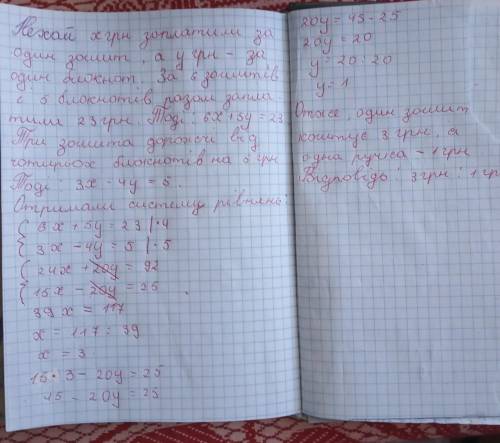 Нехай х грн заплатили за
один зошит, а у грн - за
один блокнот. За 6 зошитів
і 5 блокнотів разом запла
тили 23 грн. Тоді: 6х + 5у = 23
Три зошита дорожчі від
чотирьох блокнотів на 5 грн
Тоді 3х - 4у = 5.
Отримали систему рівнянь:
{ 6х + 5у = 23 | · 4
{ 3х - 4у = 5 | · 5
{ 24х + 20у = 92
{ 15х - 20у = 25 .
39х = 117
х = 117 : 39
х = 3
15 · 3 - 20у = 25
45 - 20у = 25
20у = 45 - 25
20у = 20
у = 20 : 20
у = 1
Отже, один зошит
коштує 3 грн, а
одна ручка - 1 грн
Відповідь: 3 грн; 1 гр